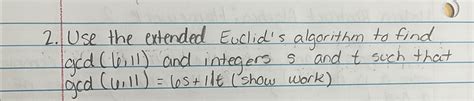 2. Use the extended Euclid's algorithm to find
gcd (6,11) and integers s and t such that
gcd (6,11) = 6s+11t (show work)